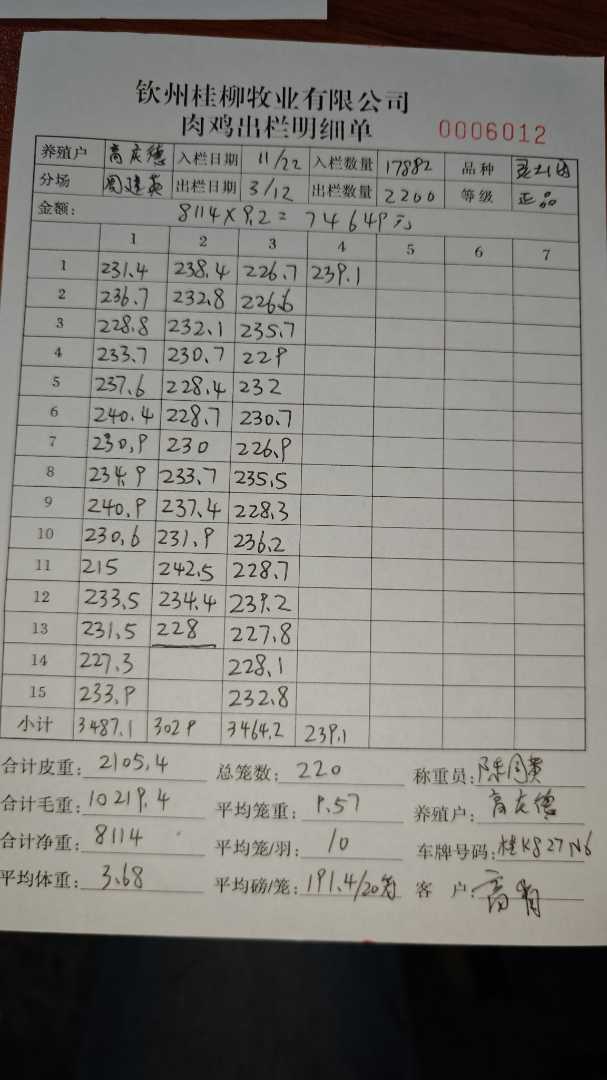 钦州桂柳牧业有限公司
肉鸡出栏明细单 0006012
养殖户 高庆德 入栏日期 11/22 入栏数量 17882 品种
分场 周建英 出栏日期 3/12 出栏数量 2200 等级 正品
金额: 8114×9.2=74649元
1 2 3 4 5 6 7
1 231.4 238.4 226.7 239.1
2 236.7 232.8 226.6
3 228.8 232.1 235.7
4 233.7 230.7 229
5 237.6 228.4 232
6 240.4 228.7 230.7
7 230.9 230 226.9
8 234.9 233.7 235.5
9 240.9 237.4 228.3
10 230.6 231.9 236.2
11 215 242.5 228.7
12 233.5 234.4 239.2
13 231.5 228 227.8
14 227.3 228.1
15 233.9 232.8
小计 3487.1 3029 3464.2 239.1
合计皮重: 2105.4 总笼数: 220 称重员:
合计毛重: 10219.4 平均笼重: 9.57 养殖户: 高庆德
合计净重: 8114 平均笼/羽: 10 车牌号码: 桂K827N6
平均体重: 3.68 平均磅/笼: 191.4/20 客 户: